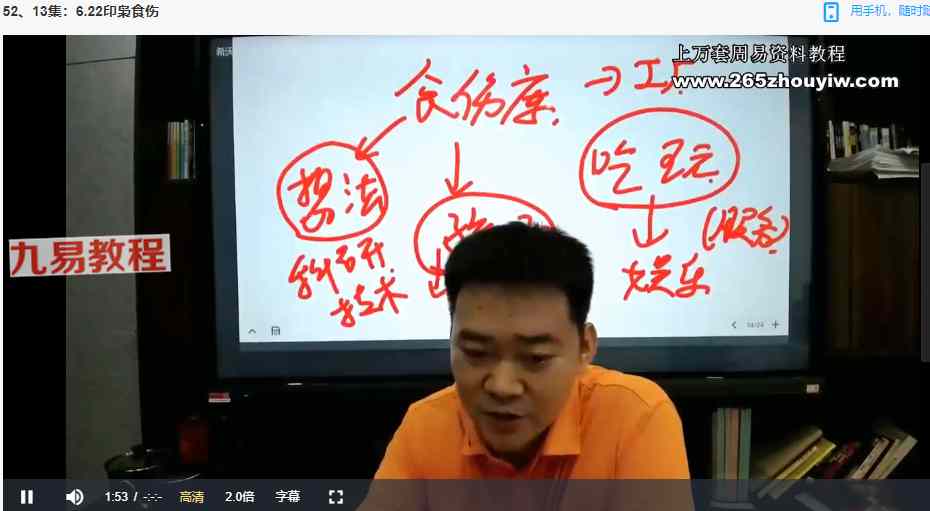 52、13集：6.22印枭食伤
用手机，随时随
上万套周易资料教程
www.265zhouyiw.com
食伤库
工厂
想法
吃 玩
(服务)
九易教程
科研
技术
娱乐
14/24
1:53 / -:-:-
高清
2.0倍
字幕